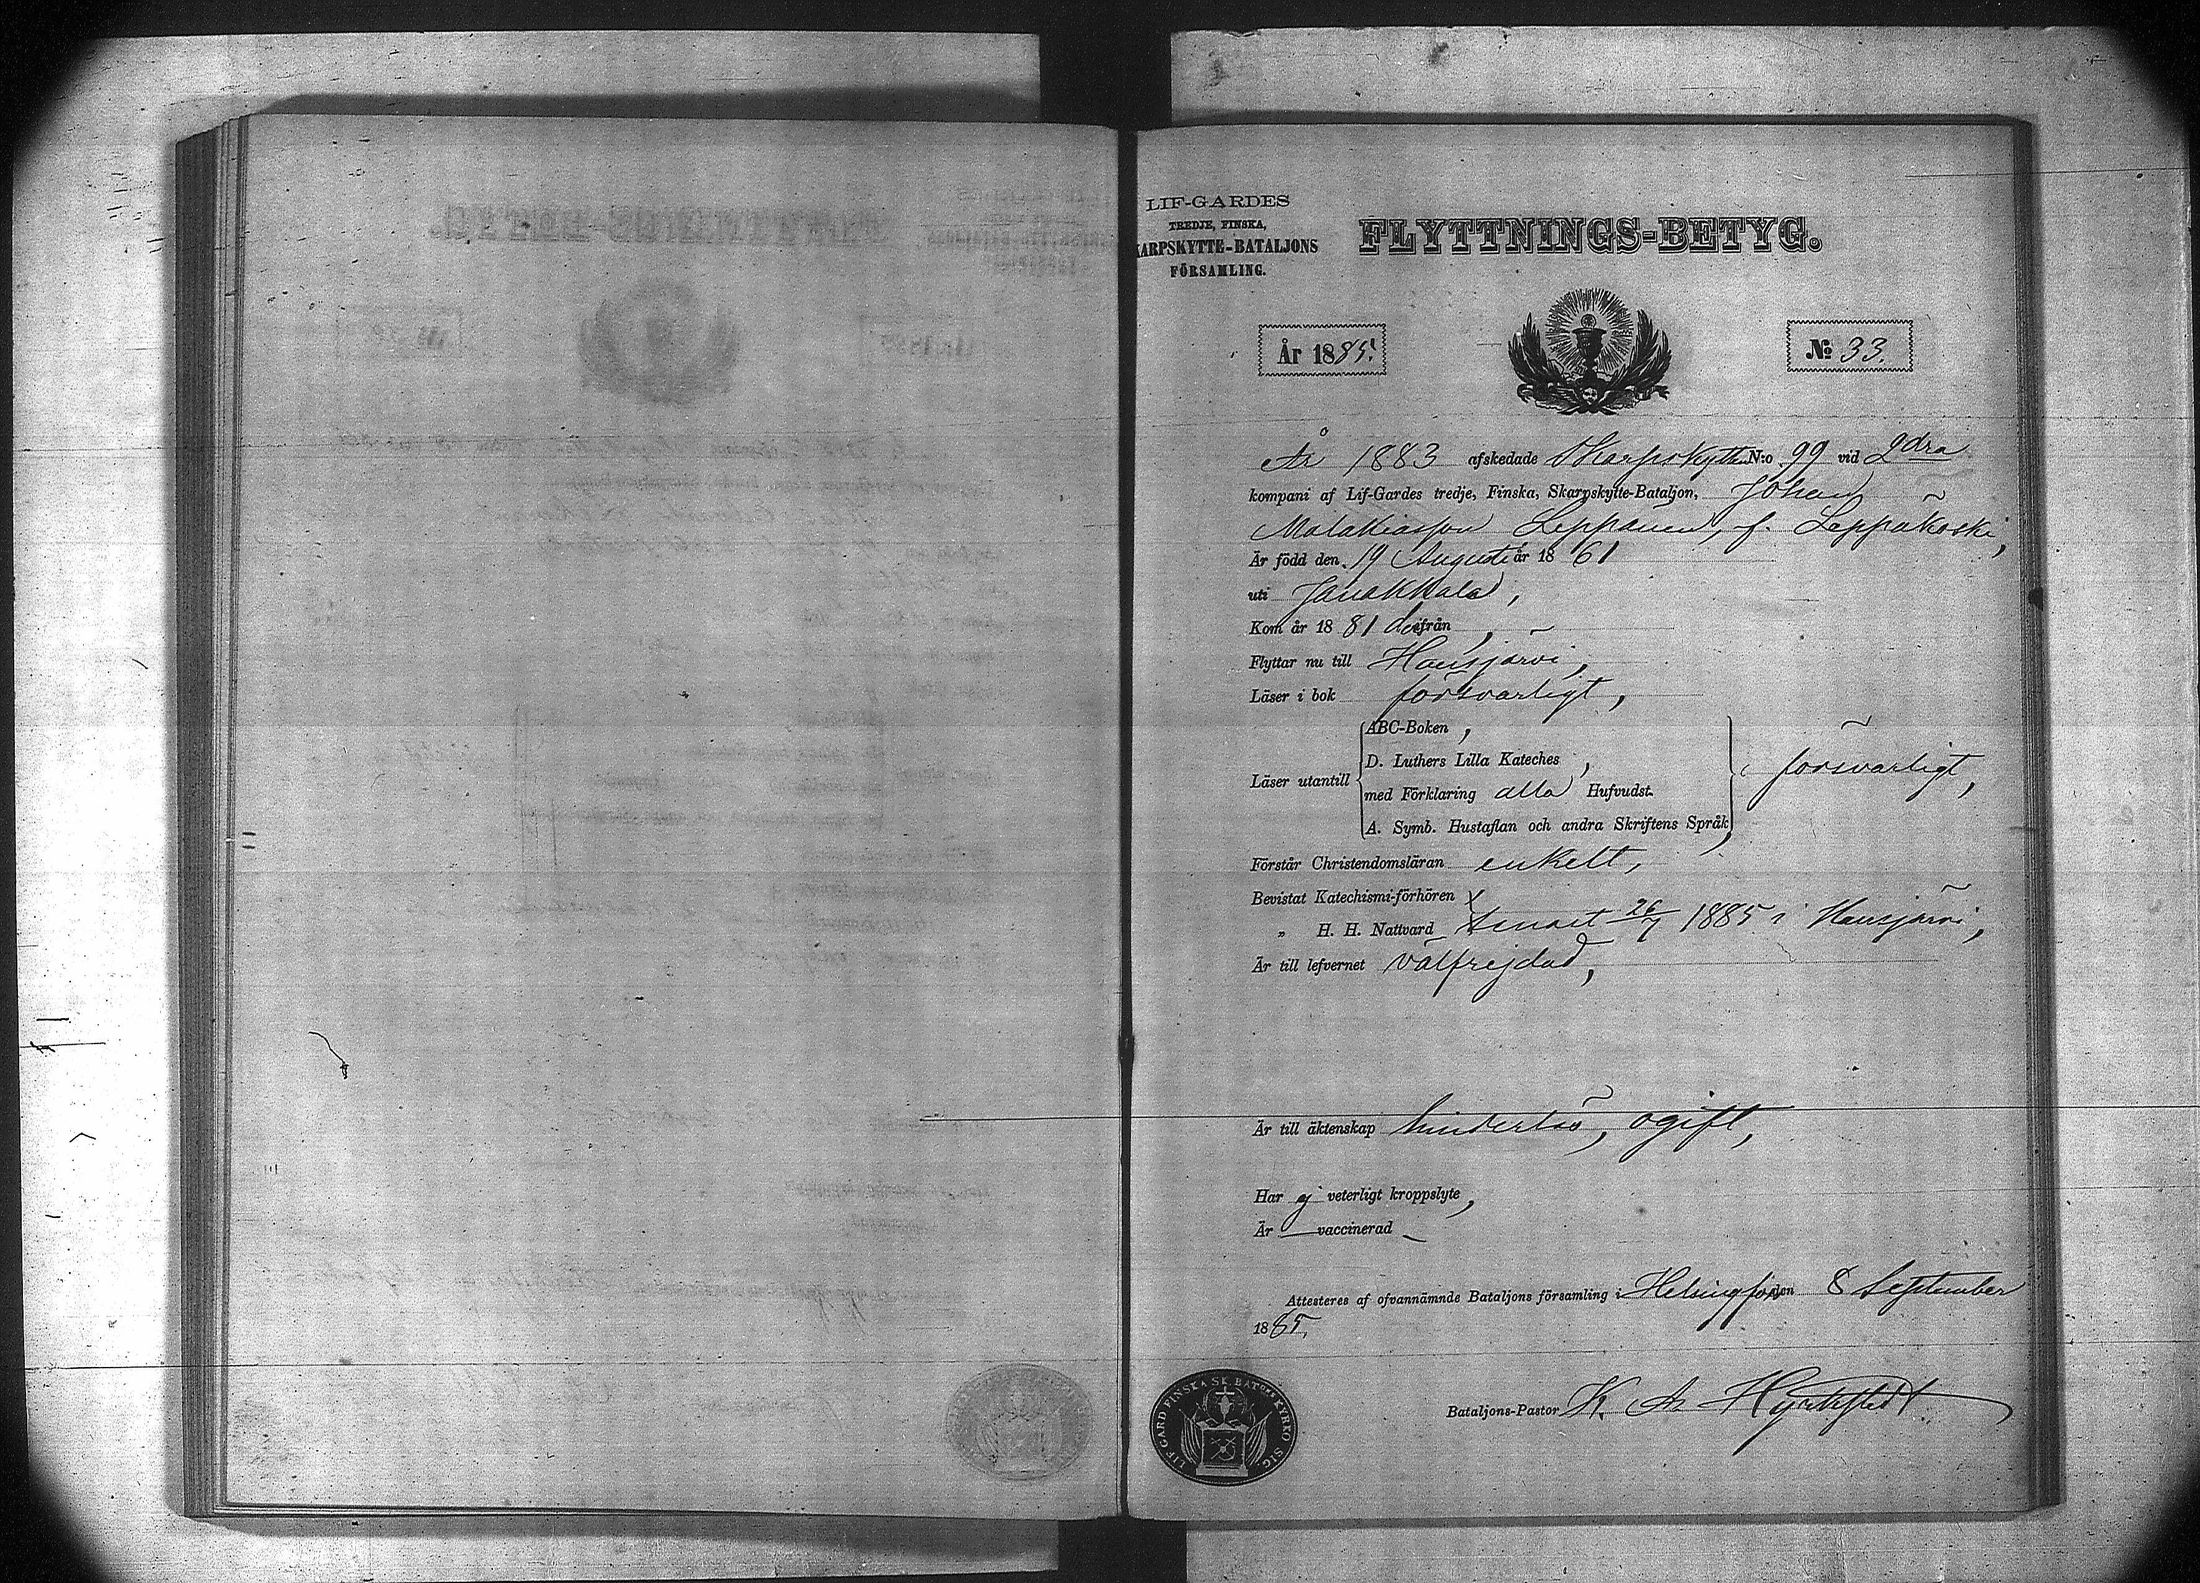 LIF-GARDES
TREDJE, FINSKA,
KARPSKYTTE-BATALJONS
FÖRSAMLING.
FLYTTNINGS-BETYG.
År 1885.
№ 33.
År 1883 afskedade Skarpskytten N:o 99 vid 2dra
kompani af Lif-Gardes tredje, Finska, Skarpskytte-Bataljon, Johan
Malakiasson Leppänen, f. Leppäkoski,
Är född den 19 Augusti år 1861
uti Janakkala,
Kom år 1881 derifrån,
Flyttar nu till Hausjärvi,
Läser i bok försvarligt,
Läser utantill
ABC-Boken,
D. Luthers Lilla Kateches,
med Förklaring alla Hufvudst.
A. Symb. Hustaflan och andra Skriftens Språk,
försvarligt,
Förstår Christendomsläran enkelt,
Bevistat Katechismi-förhören
„ H. H. Nattvard senast 26/7 1885 i Hausjärvi,
Är till lefvernet välfrejdad,
Är till äktenskap hinderlös, ogift,
Har ej veterligt kroppslyte,
Är — vaccinerad —
Attesteres af ofvannämnde Bataljons församling i Helsingfors den 8 September
1885.
Bataljons-Pastor K. A. Hyrkstedt
LIF GARD FINSKA SK. BATONS KYRKO SIG.